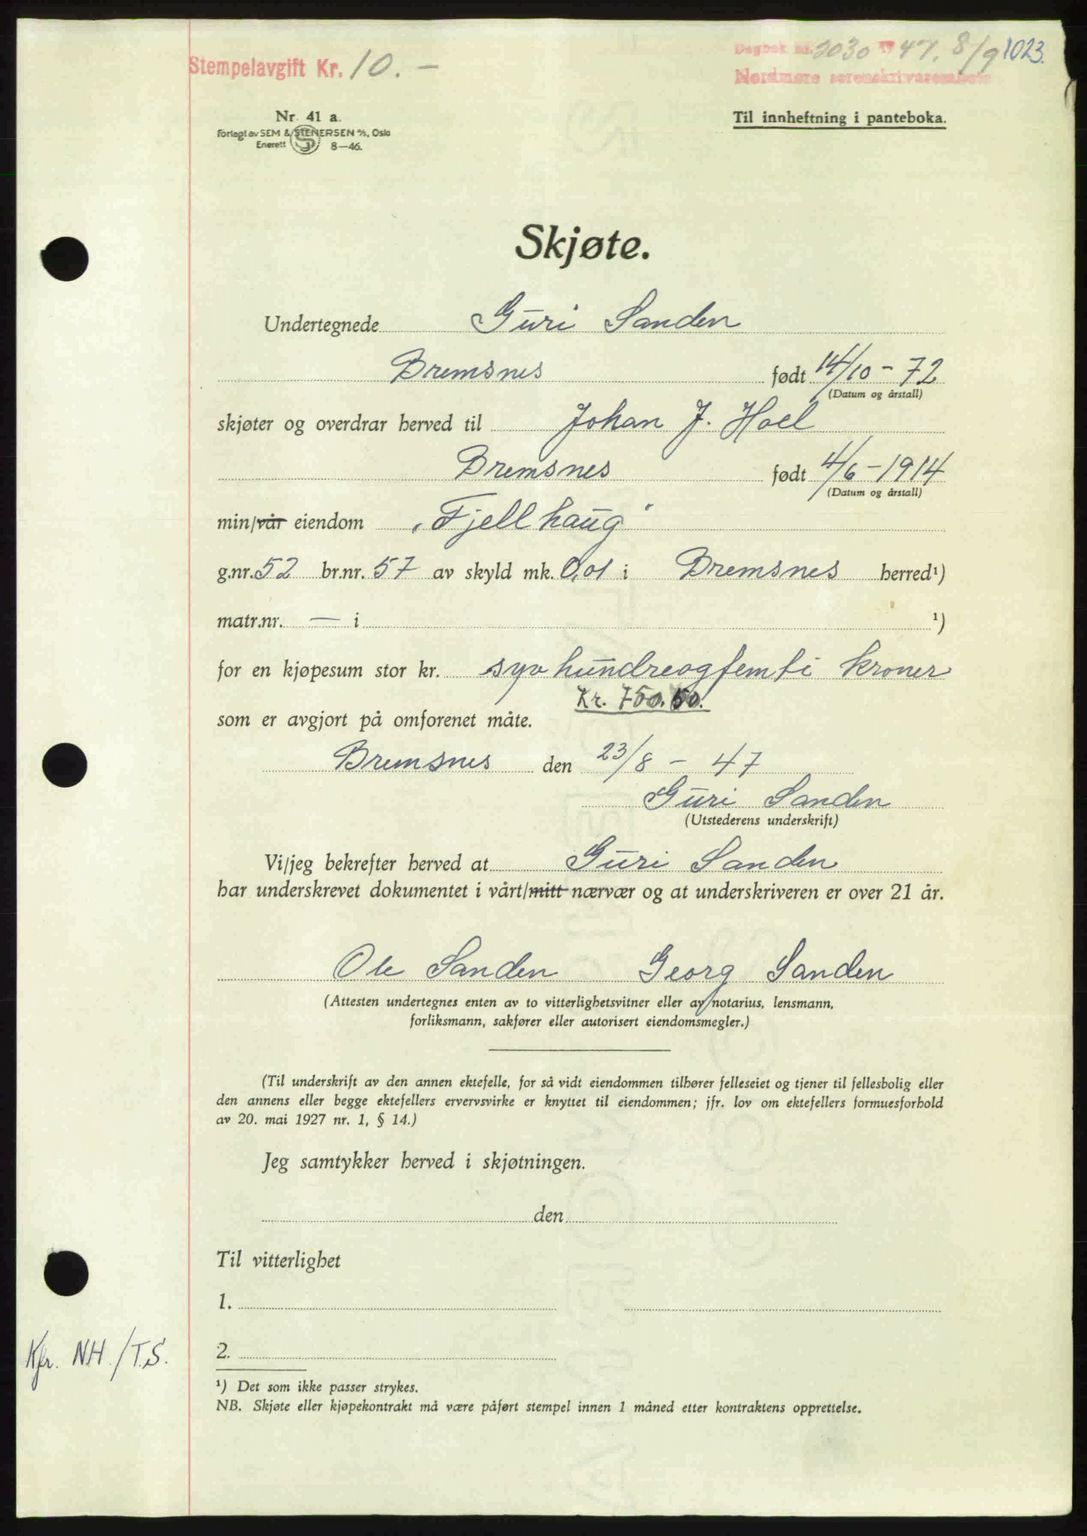 Stempelavgift Kr. 10.-
Dagbok nr. 2030 1947. 8/9 1023.
Nordmøre sorenskriverembete
Nr. 41 a.
Forlagt av SEM & STENERSEN A/S, Oslo
Enerett 8-46.
Til innheftning i panteboka.
Skjøte.
Undertegnede Guri Sanden
Bremsnes født 14/10-72
(Datum og årstall)
skjøter og overdrar herved til Johan J. Hoel
Bremsnes født 4/6-1914
(Datum og årstall)
min/vår eiendom "Fjellhaug"
g.nr. 52 br.nr. 57 av skyld mk. 0,01 i Bremsnes herred¹)
matr.nr. — i ¹)
for en kjøpesum stor kr. syv hundreogfemti kroner
Kr. 750.
som er avgjort på omforenet måte.
Bremsnes den 23/8 - 47
Guri Sanden
(Utstederens underskrift)
Vi/jeg bekrefter herved at Guri Sanden
har underskrevet dokumentet i vårt/mitt nærvær og at underskriveren er over 21 år.
Ole Sanden Georg Sanden
(Attesten undertegnes enten av to vitterlighetsvitner eller av notarius, lensmann,
forliksmann, sakfører eller autorisert eiendomsmegler.)
(Til underskrift av den annen ektefelle, for så vidt eiendommen tilhører felleseiet og tjener til fellesbolig eller
den annens eller begge ektefellers ervervsvirke er knyttet til eiendommen; jfr. lov om ektefellers formuesforhold
av 20. mai 1927 nr. 1, § 14.)
Jeg samtykker herved i skjøtningen.
den
Til vitterlighet
1.
2.
Kfr. NH./T.S.
¹) Det som ikke passer strykes.
NB. Skjøte eller kjøpekontrakt må være påført stempel innen 1 måned etter kontraktens opprettelse.